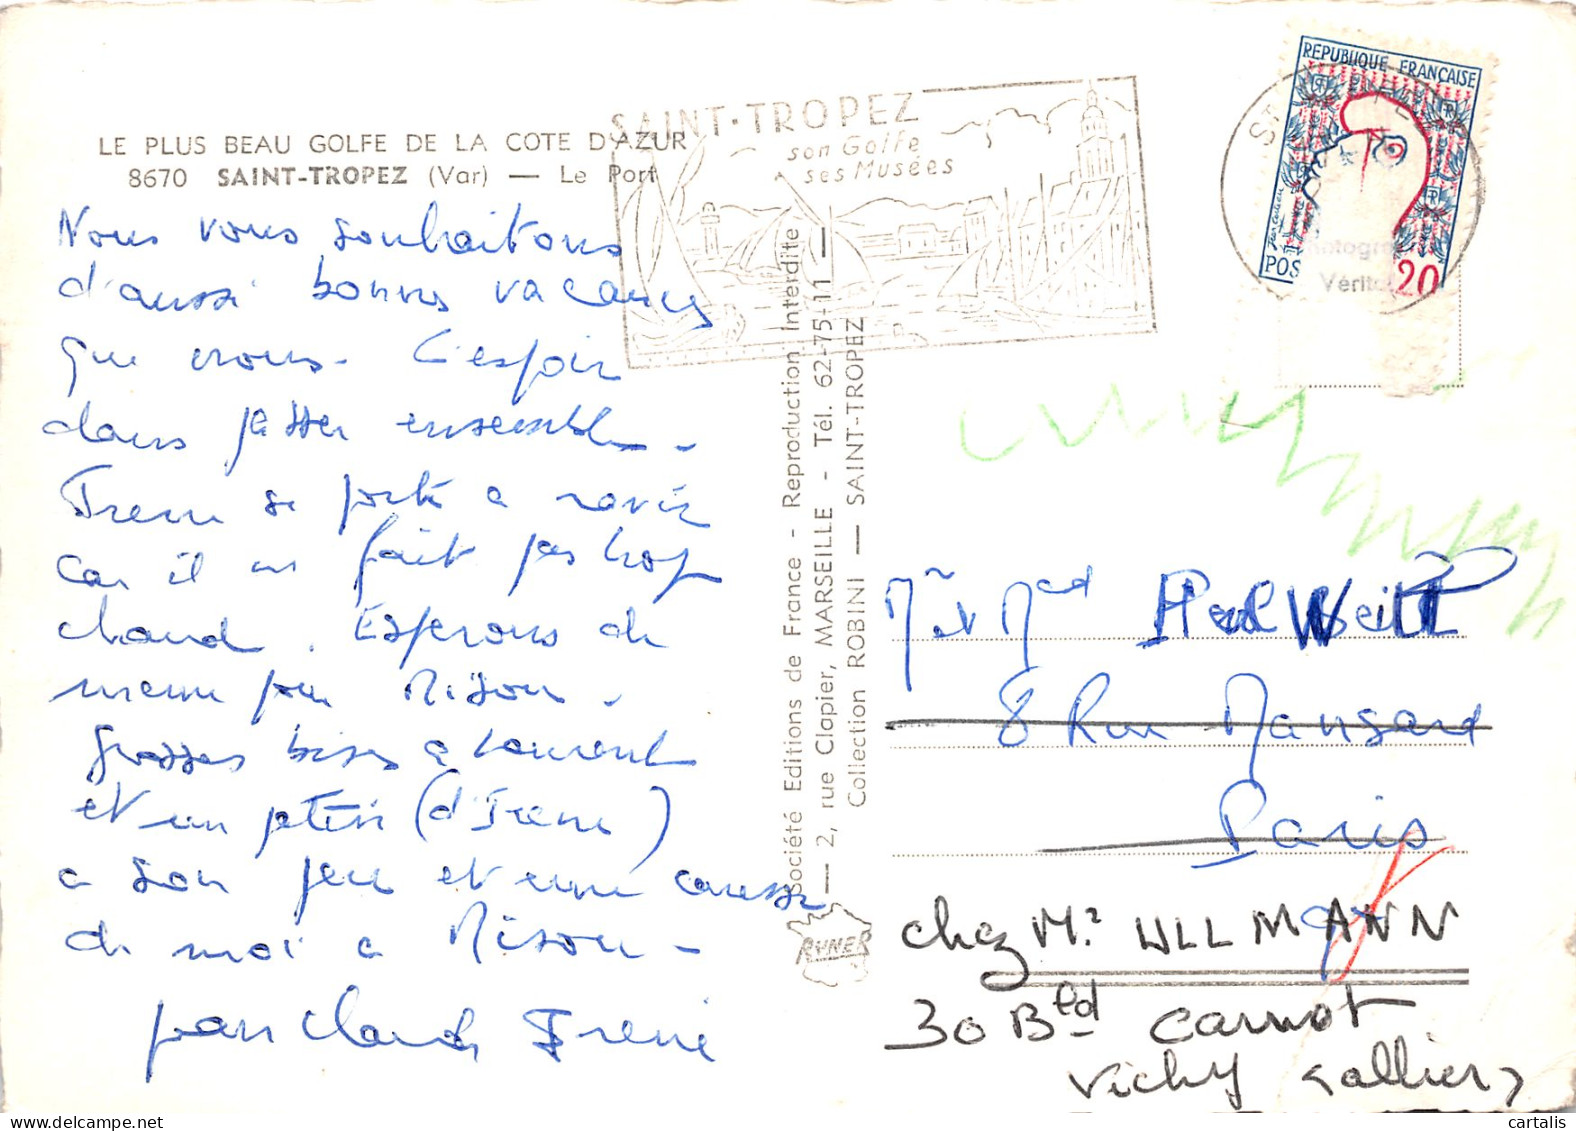 LE PLUS BEAU GOLFE DE LA COTE D'AZUR
8670 SAINT-TROPEZ (Var) — Le Port
Nous vous souhaitons
d'aussi bonnes vacances
que nous. L'espoir
dans passer ensemble.
Irene se porte a ravir
car il ne fait pas trop
chaud. Esperons de
meme pour
Grosses bises a Laurent
et un petit (d'Irene)
a son jeu et une caresse
de moi a
Jean Claude Irene
SAINT-TROPEZ
son Golfe
ses Musées
Société Editions de France - Reproduction Interdite
— 2, rue Clapier, MARSEILLE - Tél. 62-75-11 —
Collection ROBINI — SAINT-TROPEZ
RYNER
REPUBLIQUE FRANÇAISE
Jean Cocteau
POS
20
Photogra
Vérita
Mr et Mad Weill
8 Rue Mansard
Paris
chez Mr. ULLMANN
30 Bld Carnot
Vichy (allier)
cartalis